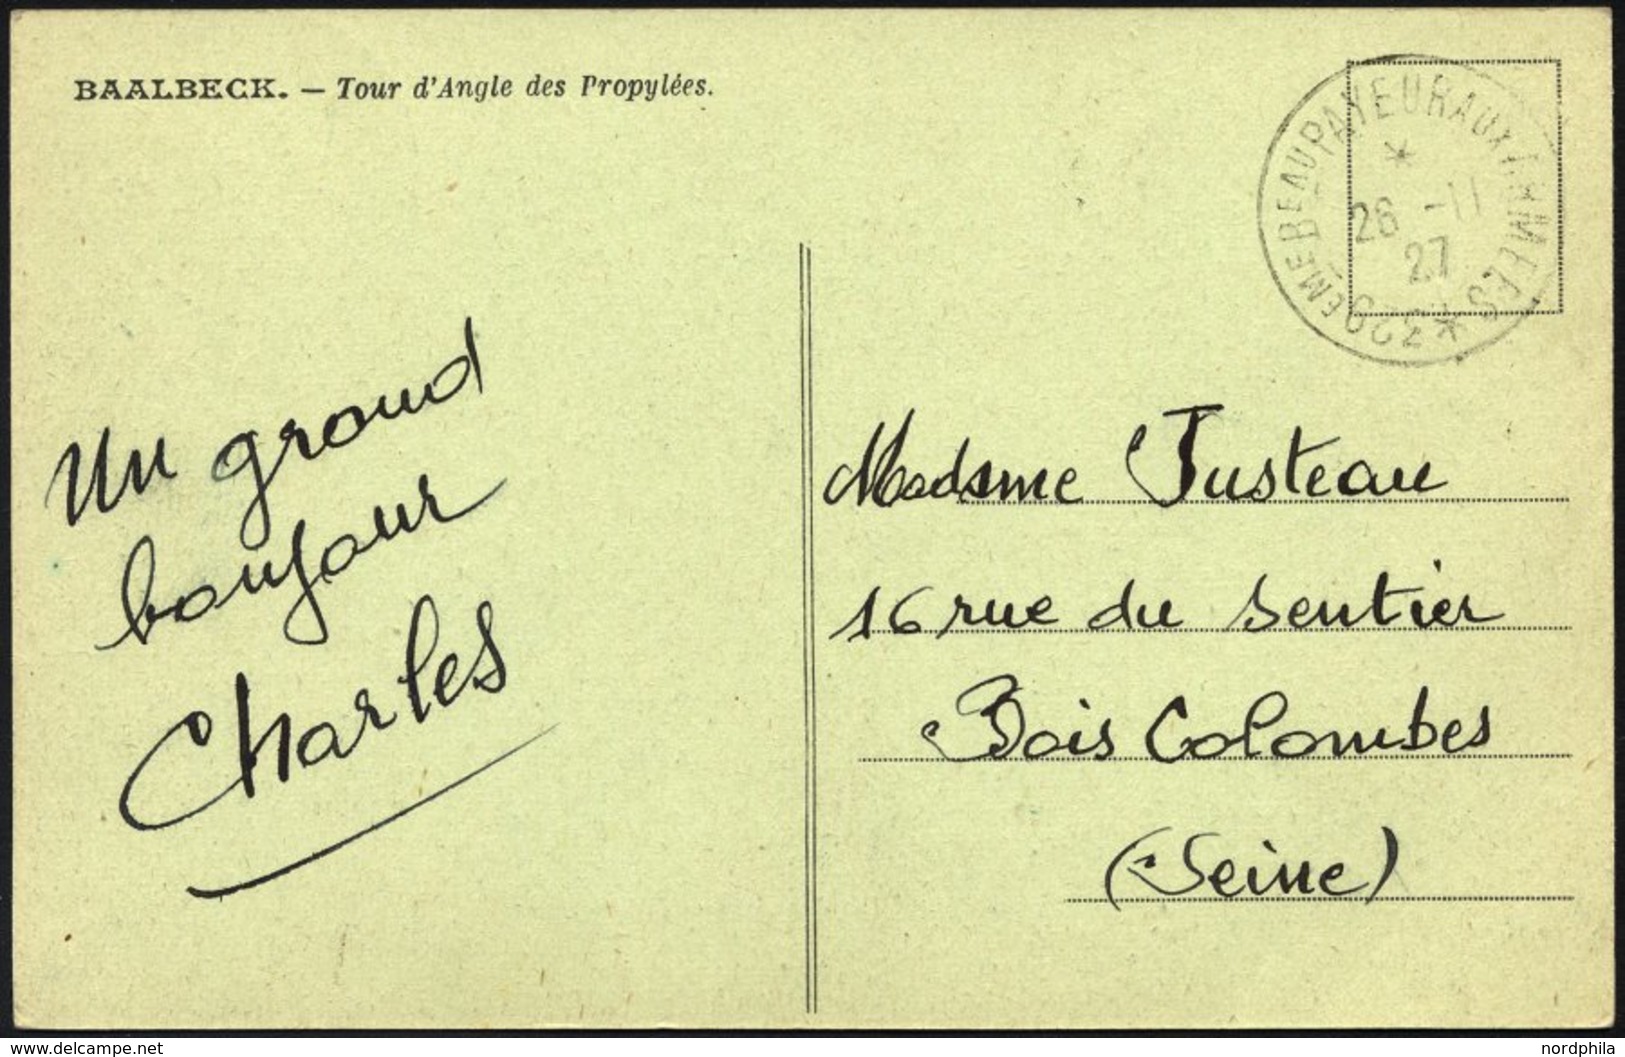 BAALBECK. — Tour d'Angle des Propylées.
BEAU PAYEUR AUX ARMEES
26 -11
27
Un grand
bonjour
Charles
Madame Justeau
16 rue du Sentier
Bois Colombes
(Seine)
www.delcampe.net
nordphila